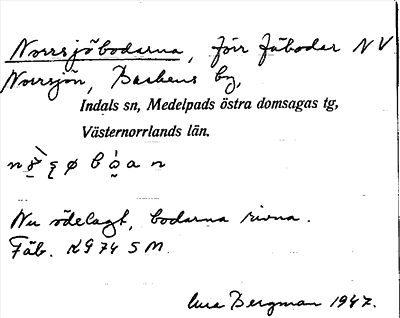 Norrsjöbodarna, förr fäbodar NV
Norrsjön, Backens by,
Indals sn, Medelpads östra domsagas tg,
Västernorrlands län.
Nu ödelagt, bodarna rivna.
Fäb. KG 74 S M.
Bergman 1947.